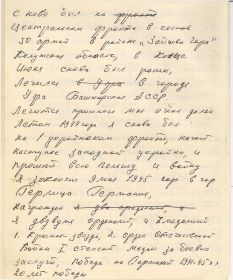 с ново был на фронте
Центральном фронте в составе
50 армией в районе "Зайцева гора"
Калужская область, в конце
Июня снова был ранен,
Лечился в городе
Уфа Башкирская АССР.
Лечится пришлось мне очень долго
Летом 1944 года я снова был
на 1 украинском фронте, начал
наступ западной украины, и
прошел всю Польшу и войну
Я закончил 9 мая 1945 года в гор
Герлица Германия,
Награжден
я двумя орденами, и 4 медалей
1. Красная звезда, 2. орден отечественной
Войны I степени медаль за боевые
заслуги, Победа над Германией 1941-45 г
20 лет победы